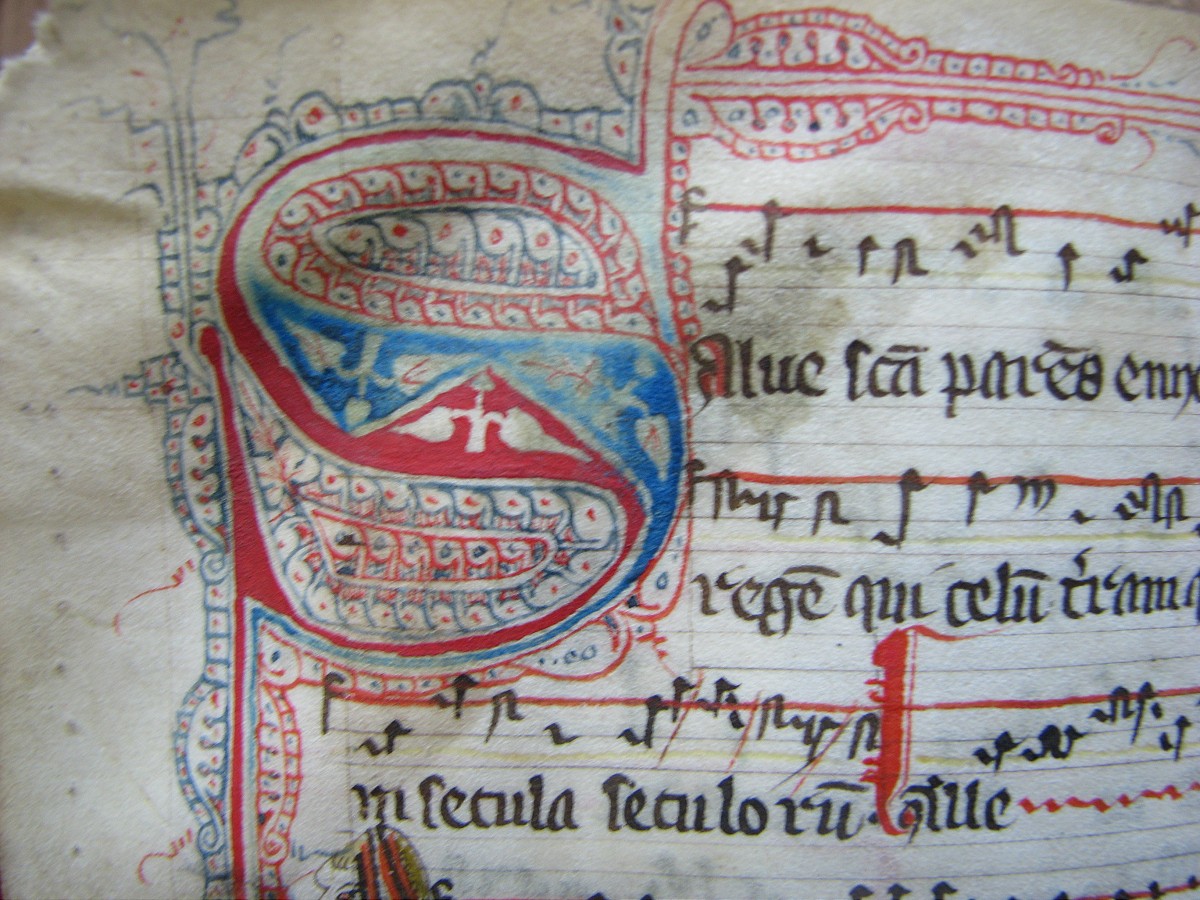 Salue sc̄a pare̅s enix
regē qui celū t'ram
in secula seculorū.